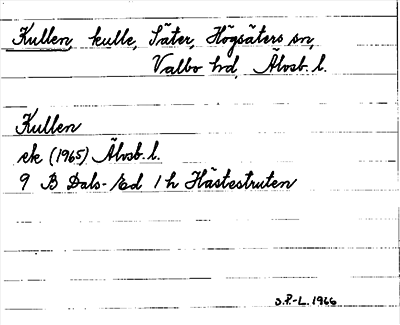 Kullen, kulle, Säter, Högsäters sn,
Valbo hd, Älvsb. l.
Kullen
ek (1965) Älvsb. l.
9 B Dals-Ed 1 h Hästestruten
S.P.-L. 1966